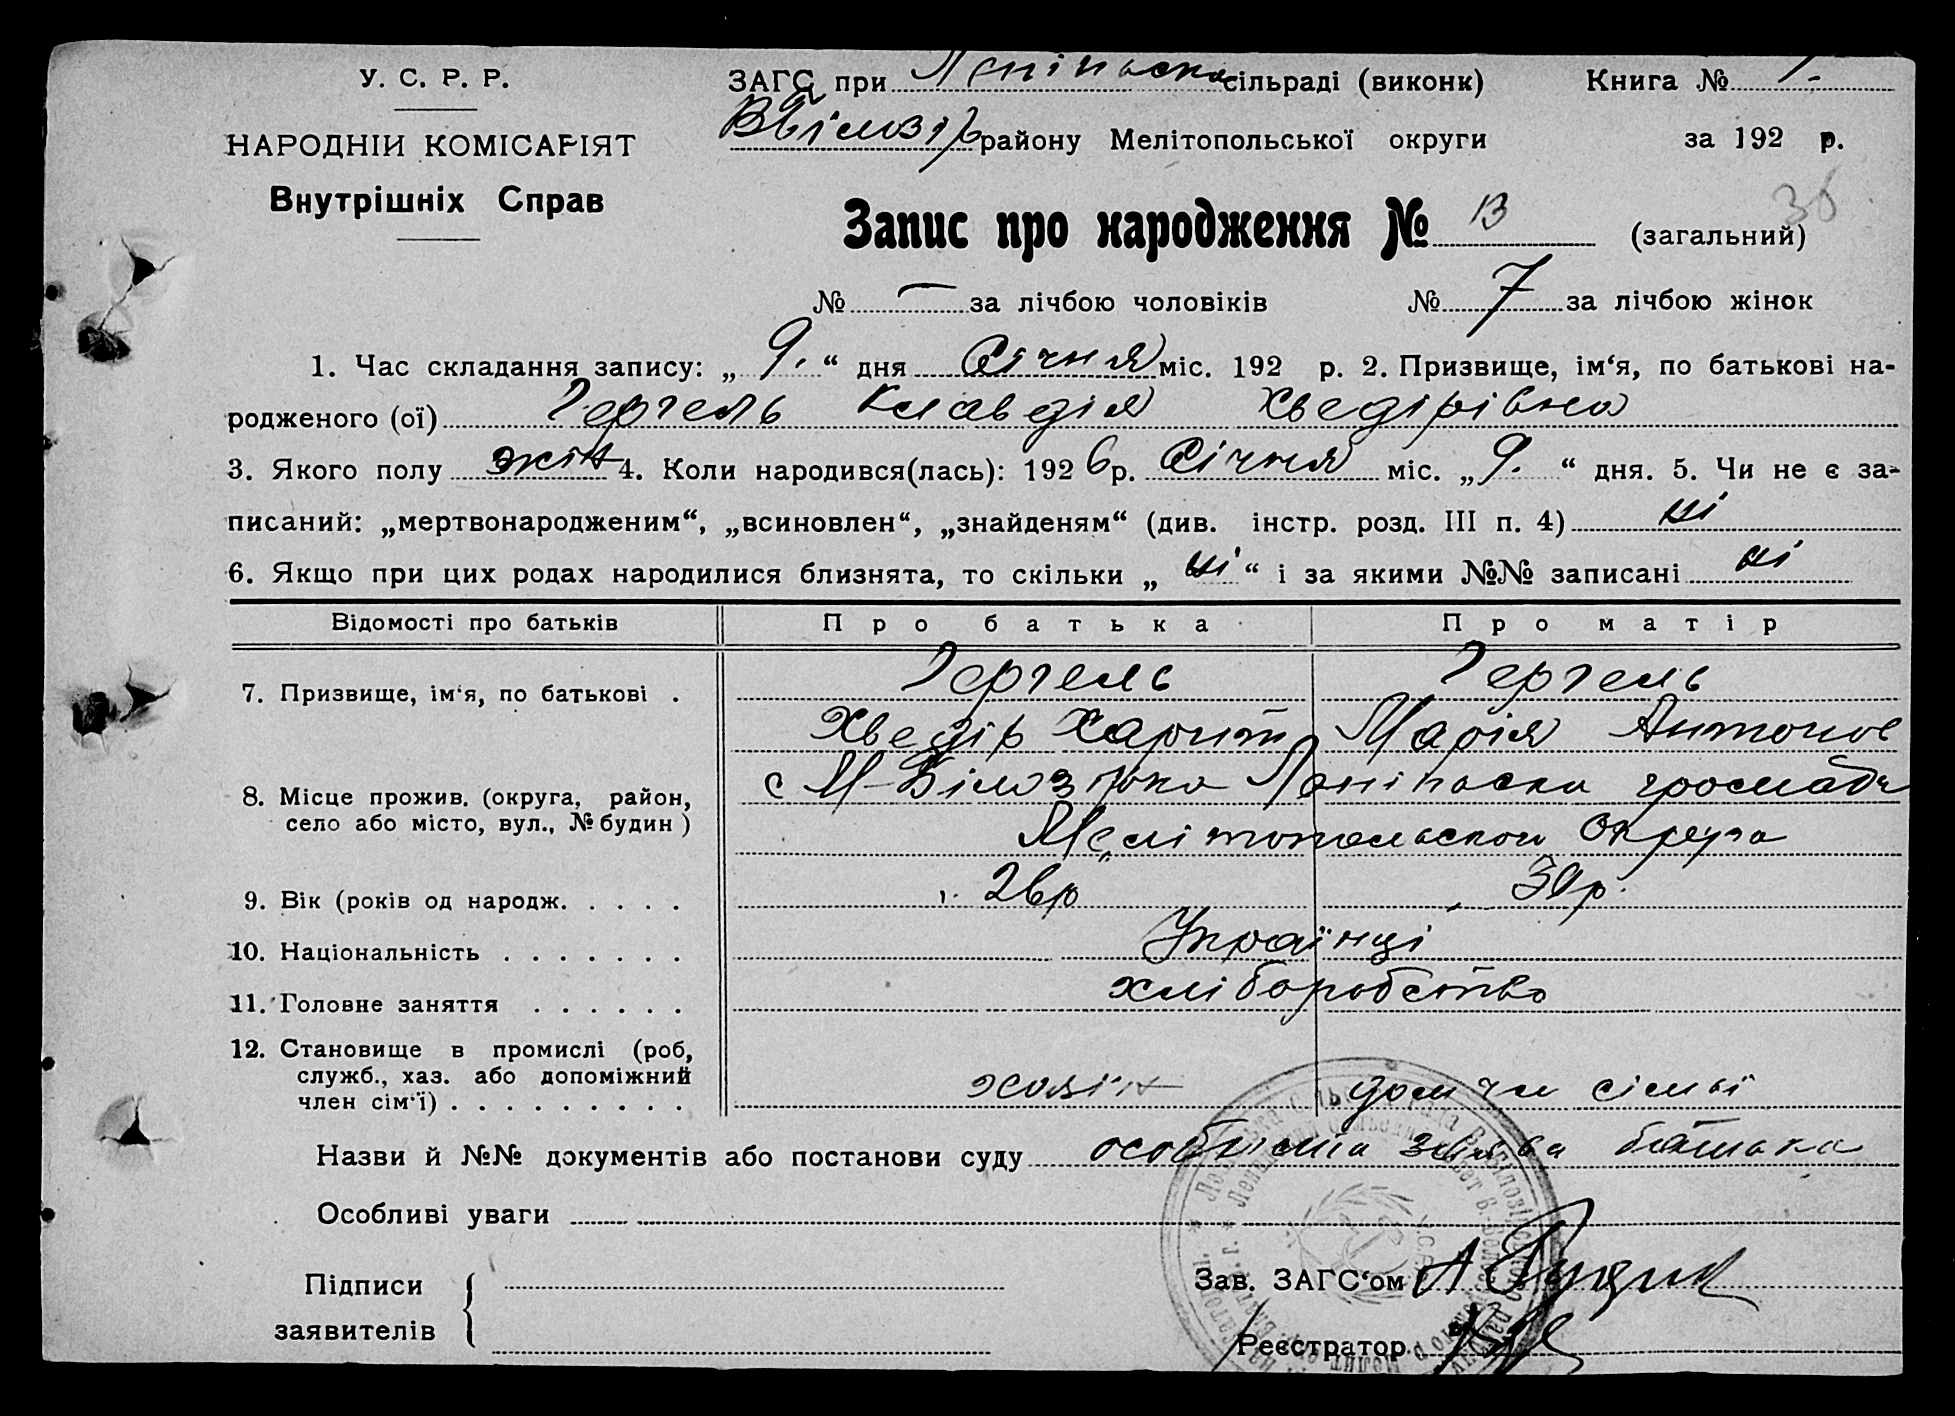 У. С. Р. Р.
НАРОДНІЙ КОМІСАРІЯТ
Внутрішніх Справ
ЗАГС при Леніньска сільраді (виконк) Книга № 1.
району Мелітопольської округи за 192 р.
36
Запис про народження № 13 (загальний)
№ — за лічбою чоловіків № 7 за лічбою жінок
1. Час складання запису: „ 9. “ дня Січня міс. 192 р. 2. Призвище, ім‘я, по батькові на-
родженого (ої) Гергель Клавдія Хведірівна
3. Якого полу жін 4. Коли народився(лась): 1926 р. Січня міс. „ 9. “ дня. 5. Чи не є за-
писаний: „мертвонародженим“, „всиновлен“, „знайденям“ (див. інстр. розд. III п. 4) ні
6. Якщо при цих родах народилися близнята, то скільки „ ні “ і за якими №№ записані ні
Відомості про батьків Про батька Про матір
7. Призвище, ім‘я, по батькові . Гергель Гергель
Хведір Харит Марія Антонов
8. Місце прожив. (округа, район, с М-Білозірка Леніньска громада
село або місто, вул., № будин ) Мелітопольскои Округа
9. Вік (років од народж. . . . . 26р 30р.
10. Національність . . . . . . . Українці
11. Головне заняття . . . . . . хліборобство
12. Становище в промислі (роб,
служб., хаз. або допоміжний хазяїн дом чл сімьї
член сім‘ї) . . . . . . . . .
Назви й №№ документів або постанови суду особиста заява батька
Особливі уваги
Підписи
заявителів
Зав. ЗАГС‘ом
Реєстратор